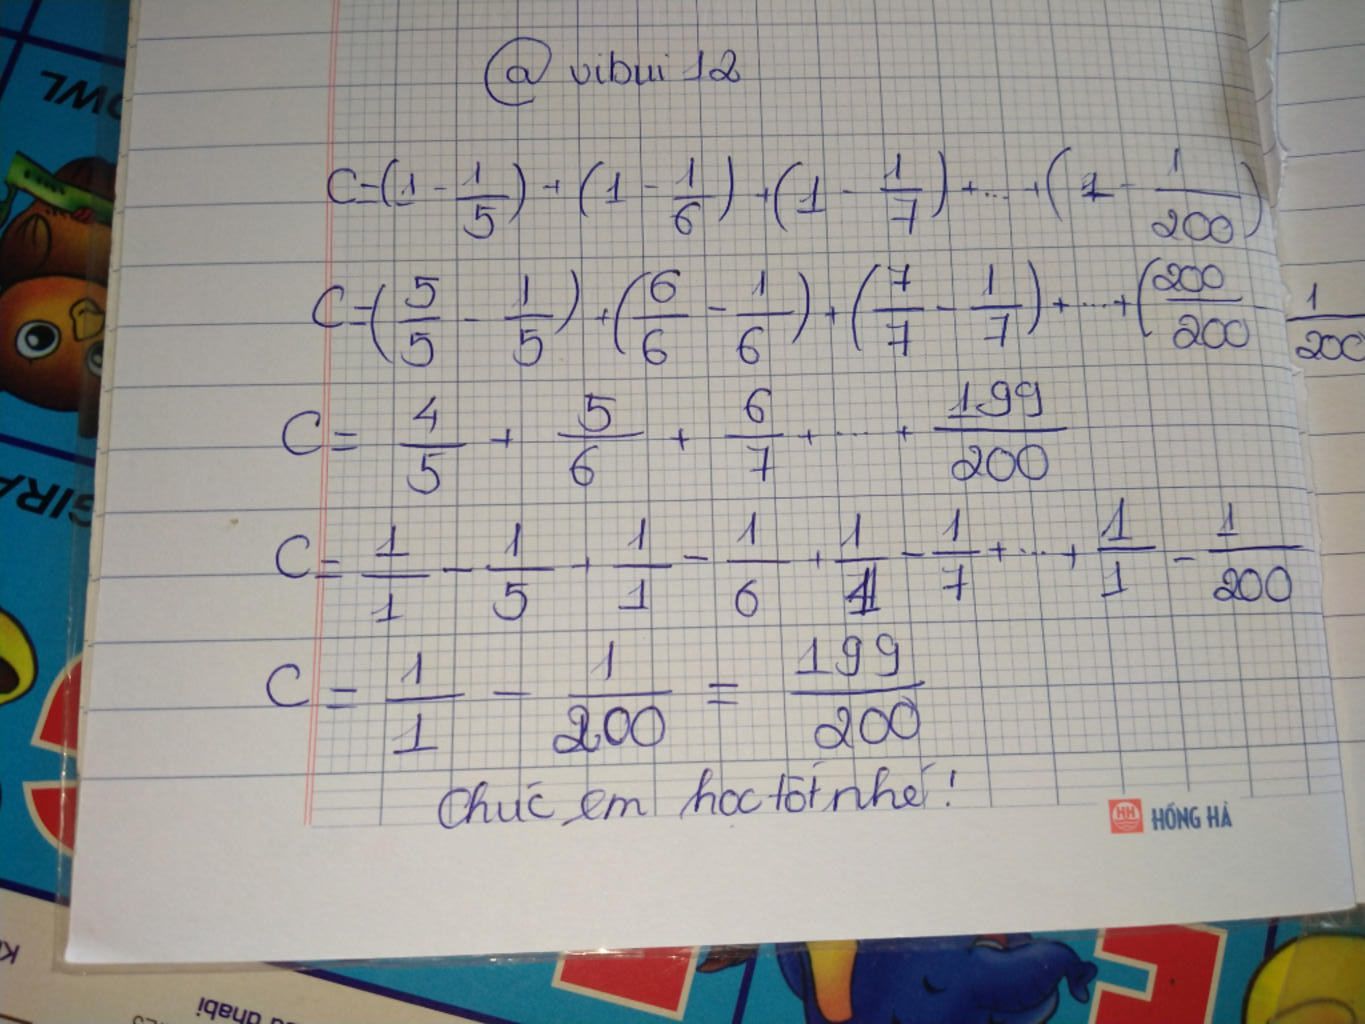 @ vibui 12
C=(1 - 1/5) + (1 - 1/6) + (1 - 1/7) + ... + (1 - 1/200)
C=(5/5 - 1/5) + (6/6 - 1/6) + (7/7 - 1/7) + ... + (200/200 - 1/200
C = 4/5 + 5/6 + 6/7 + ... + 199/200
C = 1/1 - 1/5 + 1/1 - 1/6 + 1/1 - 1/7 + ... + 1/1 - 1/200
C = 1/1 - 1/200 = 199/200
Chúc em học tốt nhé!
HH HỒNG HÀ
OWL
GIRA
dhabi